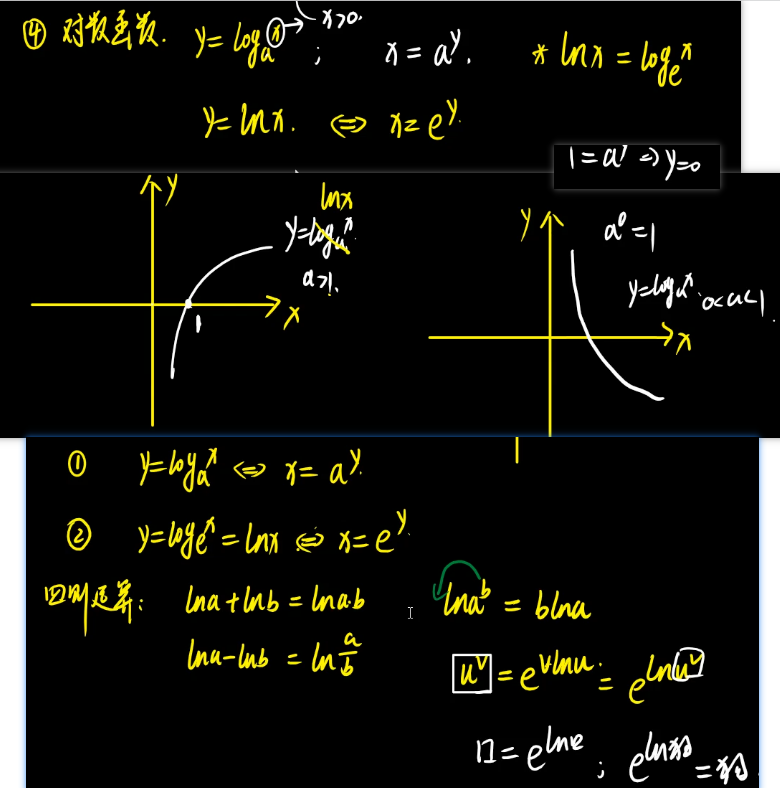 ④ 对数函数. y = logₐx → x>0. ; x = a^y. * lnx = logₑx
y = lnx. ⇔ x = e^y.
1 = a^y ⇒ y=0
y
lnx
y = logₐx
a>1.
x
1
y
a⁰ = 1
y = logₐx. 0<a<1.
x
① y = logₐx ⇔ x = a^y.
② y = logₑx = lnx ⇔ x = e^y.
四则运算: lna + lnb = lna·b lna^b = blna
lna - lnb = ln a/b
u^v = e^{vlnu}. = e^{lnu^v}
口 = e^{ln} ; e^{ln} =